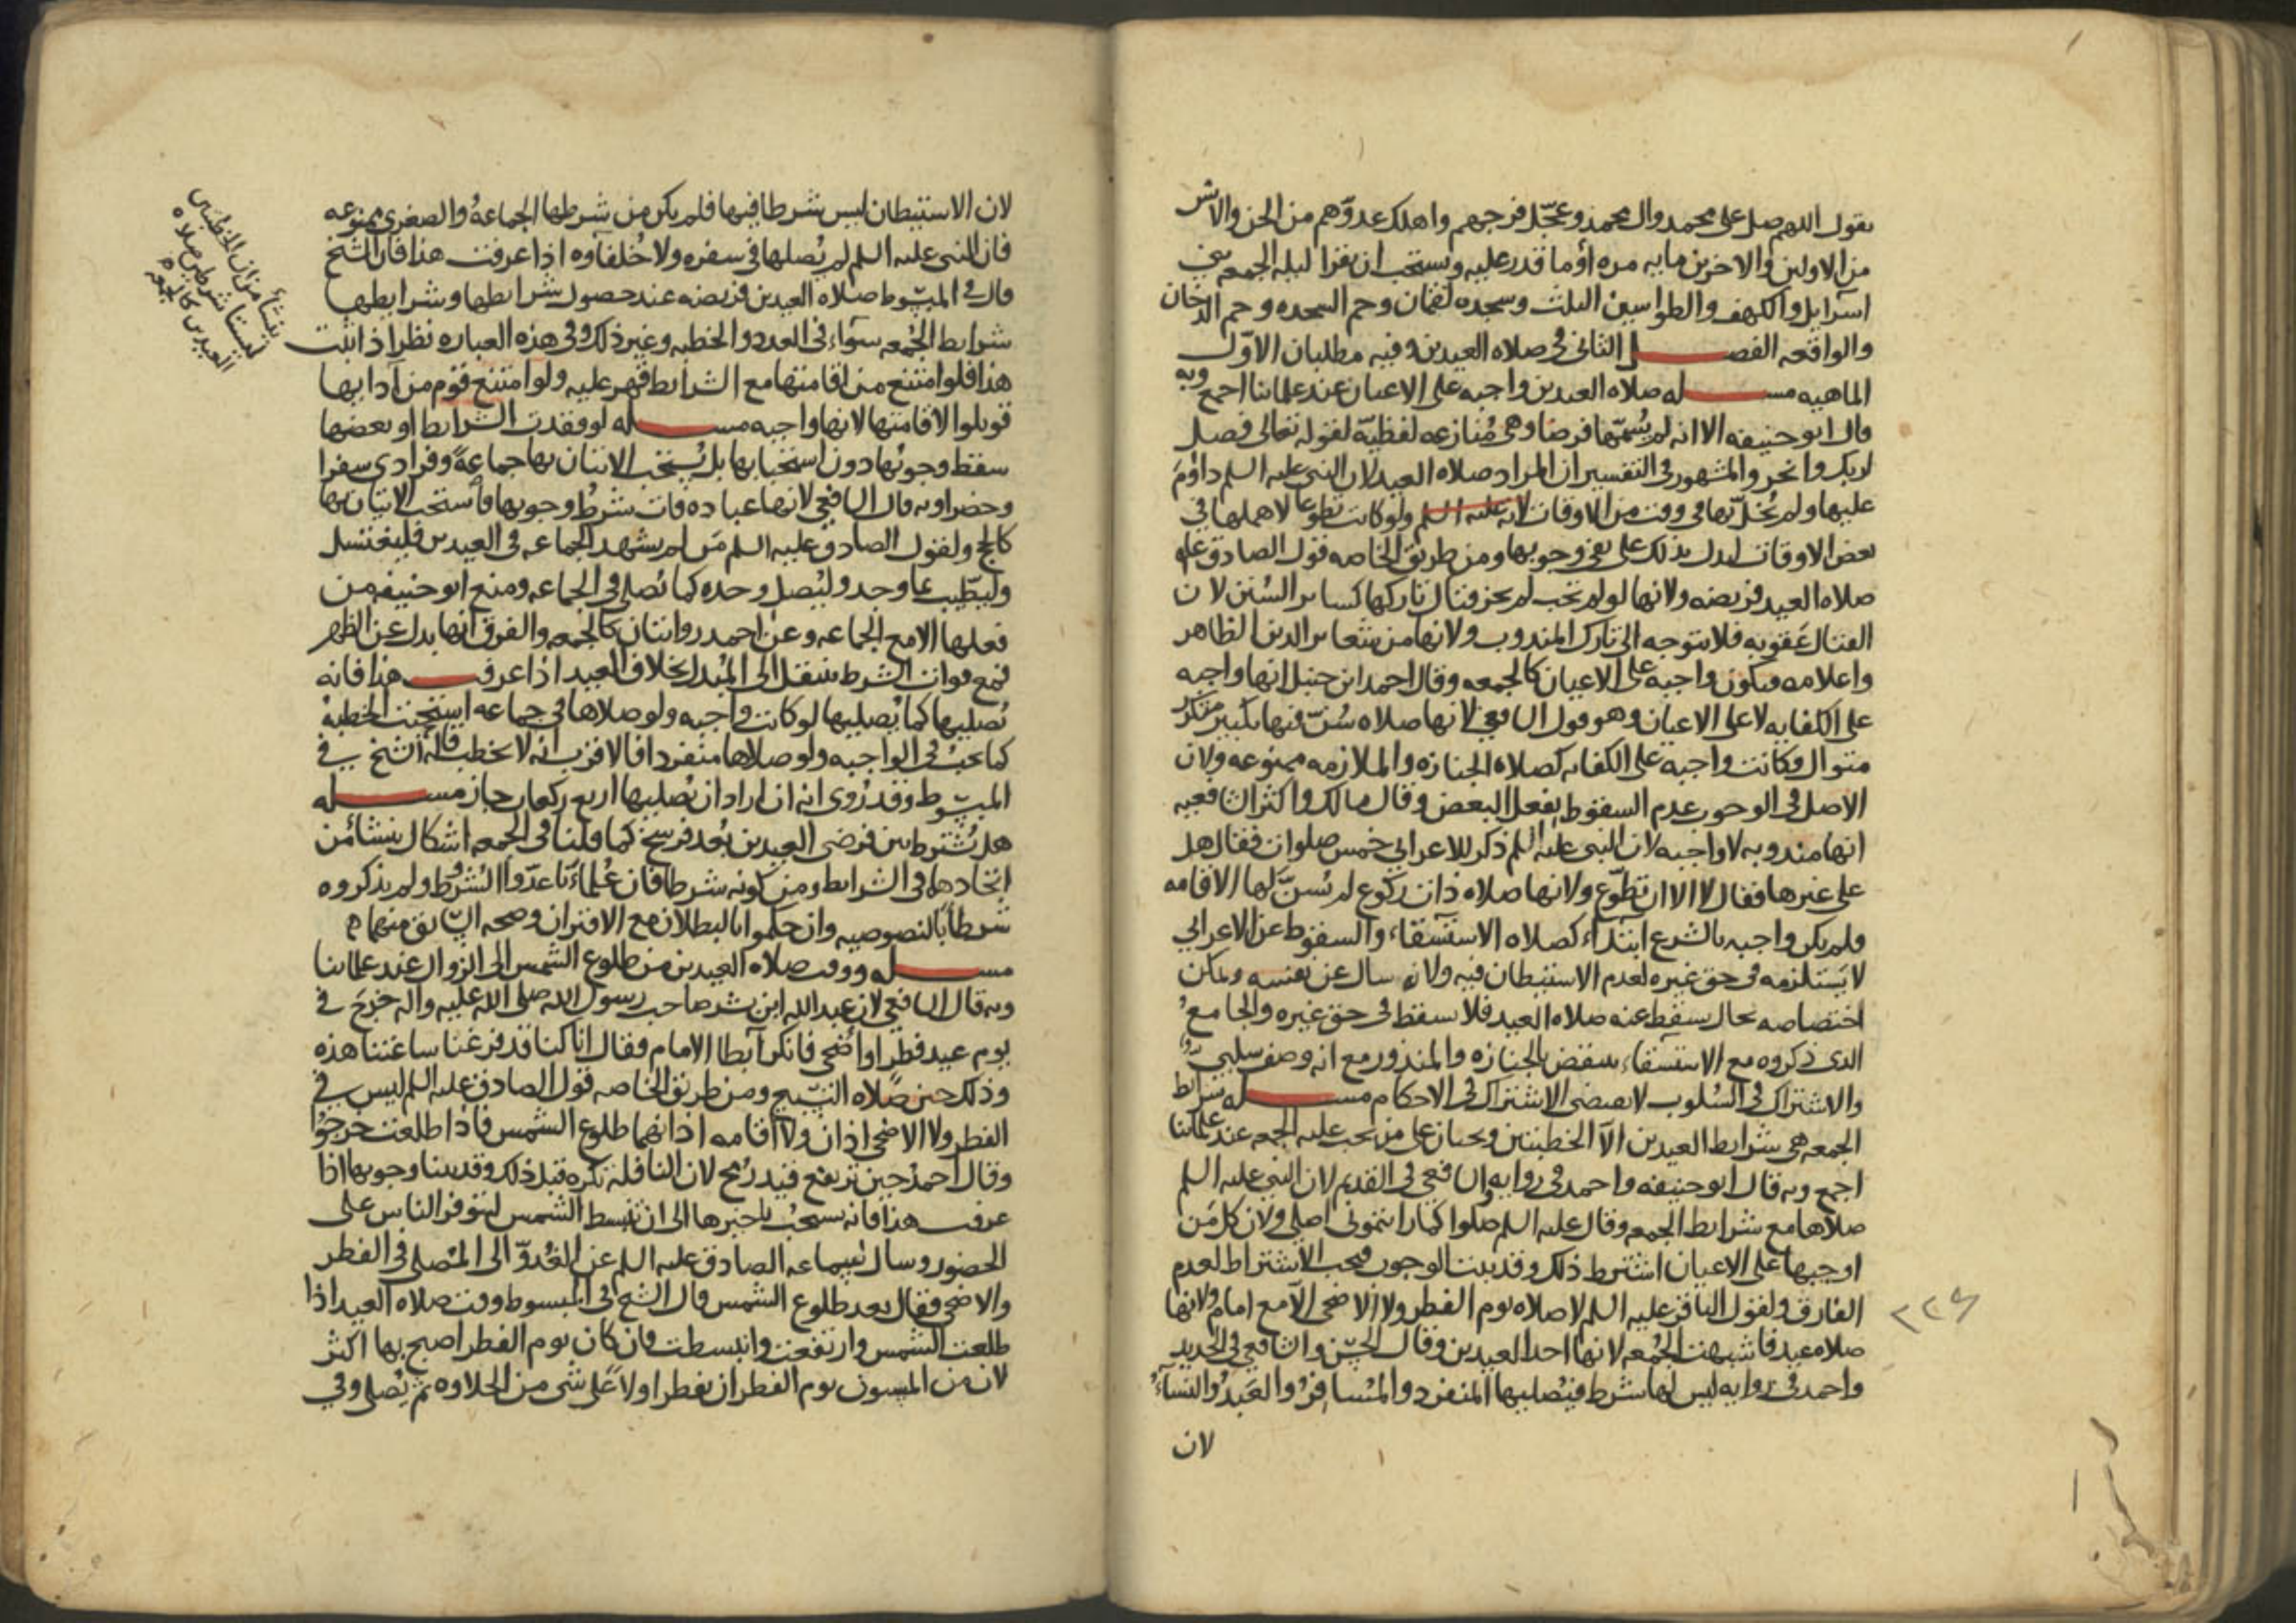 يقول اللهم صل على محمد وال محمد وعجّل فرجهم واهلك عدوّهم من الجن والانس
من الاولين والاخرين مايه مره أو ما قدر عليه ويستحب ان يقرا ليله الجمعه بني
اسرايل والكهف والطواسين الثلث وسجده لقمان وحم السجده وحم الدخان
والواقعه الفصل الثاني في صلاه العيدين وفيه مطلبان الاوّل
الماهيه مسله صلاه العيدين واجبه على الاعيان عند علمائنا اجمع وبه
قال ابو حنيفه الا انه لم يُسمّها فرضا وهي مُنازعه لفظيّة لقوله تعالى فصل
لربك وانحر والمشهور في التفسير ان المراد صلاه العيد لان النبي عليه السلم داوَم
عليها ولم يُخلّ بها في وقت من الاوقات لانه عليه السلم ولو كانت تطوعا لاهملها في
بعض الاوقات ليدل بذلك على نفي وجوبها ومن طريق الخاصه قول الصادق عليه
صلاه العيد فريضه ولانها لو لم تجب لم يجز قتال تاركها كساير السُنن لان
القتال عَقوبه فلا يتوجه الى تارك المندوب ولانها من شعاير الدين الظاهر
واعلامه فتكون واجبه على الاعيان كالجمعه وقال احمد ابن حنبل انها واجبه
على الكفايه لا على الاعيان وهو قول الشافعي لانها صلاه سُنّ فيها تكبير متكرر
متوال فكانت واجبة على الكفايه كصلاه الجنازه والملازمه ممنوعه ولان
الاصل في الوجوب عدم السقوط بفعل البعض وقال مالك واكثر الشافعيه
انها مندوبه لا واجبه لان النبي عليه السلم ذكر للاعرابي خمس صلوات فقال هل
على غيرها فقال لا الا ان تطوّع ولانها صلاه ذات ركوع لم يُسنّ لها الاقامه
فلم يكن واجبه بالشرع ابتدآء كصلاه الاستسقاء والسقوط عن الاعرابي
لا يستلزمه في حق غيره لعدم الاستيطان فيه ولانه سال عن نفسه ويمكن
اختصاصه بحال يسقط عنه صلاه العيد فلا يسقط في حق غيره والجامعُ
الذي ذكروه مع الاستسقاء ينتقض بالجنازه والمنذور مع انه وصف سلبيّ
والاشتراك في السُلوب لا يقتضي الاشتراك في الاحكام مسله شرايط
الجمعه هي شرايط العيدين الآ الخطبتين ويجبان على من يجب عليه الجمعه عند علمائنا
اجمع وبه قال ابو حنيفه واحمد في روايه والشافعي في القديم لان النبي عليه السلم
صلاها مع شرايط الجمعه وقال عليه السلم صلوا كما رايتموني اصلي ولان كل من
اوجبها على الاعيان اشترط ذلك وقد بينت الوجوب فيجب الاشتراط لعدم
الفارق ولقول الباقر عليه السلم لا صلاه يوم الفطر ولا الاضحى الآ مع امام ولانها
صلاه عيد فاشبهت الجُمعه لانها احد العيدين وقال الحسن والشافعي في الجديد
واحمد في روايه ليس لها شرط فيُصليها المنفرد والمُسافرُ والعَبدُ والنسآءُ
لان
٢٢٤
لان الاستيطان ليس شرطا فيها فلم يكن من شرطها الجماعةُ والصغرى ممنوعه
فان النبي عليه السلم لم يُصلها في سفره ولا خُلفآوه اذا عرفت هذا فان الشيخ
قال في المبسُوط صلاه العيدين فريضه عند حصول شرايطها وشرايطها
شرايط الجُمعه سوآء في العدد والخطبه وغير ذلك وفي هذه العباره نظر اذا ثبت
هذا فلو امتنع من اقامتها مع الشرايط قهر عليه ولو امتنع قوم من آدايها
قوتلوا لاقامتها لانها واجبه مسله لو فقدت الشرايط او بعضها
سقط وجوبُها دون استحبابها بل يُستحب الاتيان بها جماعةً وفرادى سفرا
وحضرا وبه قال الشافعي لانها عباده فات شرطُ وجوبها فاستحب الاتيان بها
كالحج ولقول الصادق عليه السلم مَن لم يشهد الجماعه في العيدين فليغتسل
وليطّيب بما وجد وليُصل وحده كما يُصلي في الجماعه ومنع ابو حنيفه من
فعلها الا مع الجماعه وعن احمد روايتان كالجمعه والفرق انها بدل عن الظهر
فمع فوات الشرط ينتقل الى المُبدل بخلاف العيد اذا عرفت هذا فانه
يُصليها كما يُصليها لو كانت واجبه ولو صلاها في جماعه استحبت الخطبة
كما يجبُ في الواجبه ولو صلاها منفردا فالاقرب انه لا يخطب قاله الشيخ في
المبسُوط وقد رُوي انه ان اراد ان يُصليها اربع ركعات جاز مسله
هل يُشترط بين فرضي العيدين بُعد فرسخ كما قلنا في الجمعه اشكال ينشا من
اتحادهما في الشرايط ومن كونه شرطا فان عُلماءنا عدّوا الشروط ولم يذكروه
شرطاً بالنصوصيه وان حكموا بالبطلان مع الاقتران وصحه السّابق منهما
مسله ووقت صلاه العيدين من طلوع الشمس الى الزوال عند علمائنا
وبه قال الشافعي لان عبد الله ابن بشر صاحب رسول الله صلى الله عليه واله خرجَ في
يوم عيد فطر او أضحى فانكر ابطا الامام وقال انا كنا قد فرغنا ساعتنا هذه
وذلك حين صلاه التسبيح ومن طريق الخاصه قول الصادق عليه السلم ليس في
الفطر ولا الاضحى اذان ولا اقامه اذانهما طلوع الشمس فاذا طلعت خرجوُا
وقال احمدُ حين ترتفع قيد رُمح لان النافلة تكره قبل ذلك وقد بينا وجوبها اذا
عرفت هذا فانه يستحبُ تاخيرها الى ان تنبسط الشمس ليتوفر الناس على
الحضور وسال سماعه الصادق عليه السلم عن الغُدوّ الى المُصلى في الفطر
والاضحى فقال بعد طلوع الشمس قال الشيخ في المبسوط وقت صلاه العيد اذا
طلعت الشمس وارتفعت وانبسطت فان كان يوم الفطر اصبح بها اكثر
لان من المسنون يوم الفطر ان يفطر اولا على شي من الحلاوه ثم يُصلي وفي
ينشأ من ان الخطبتين
ليستا شرط في صلاه
العيدين كالجمعه